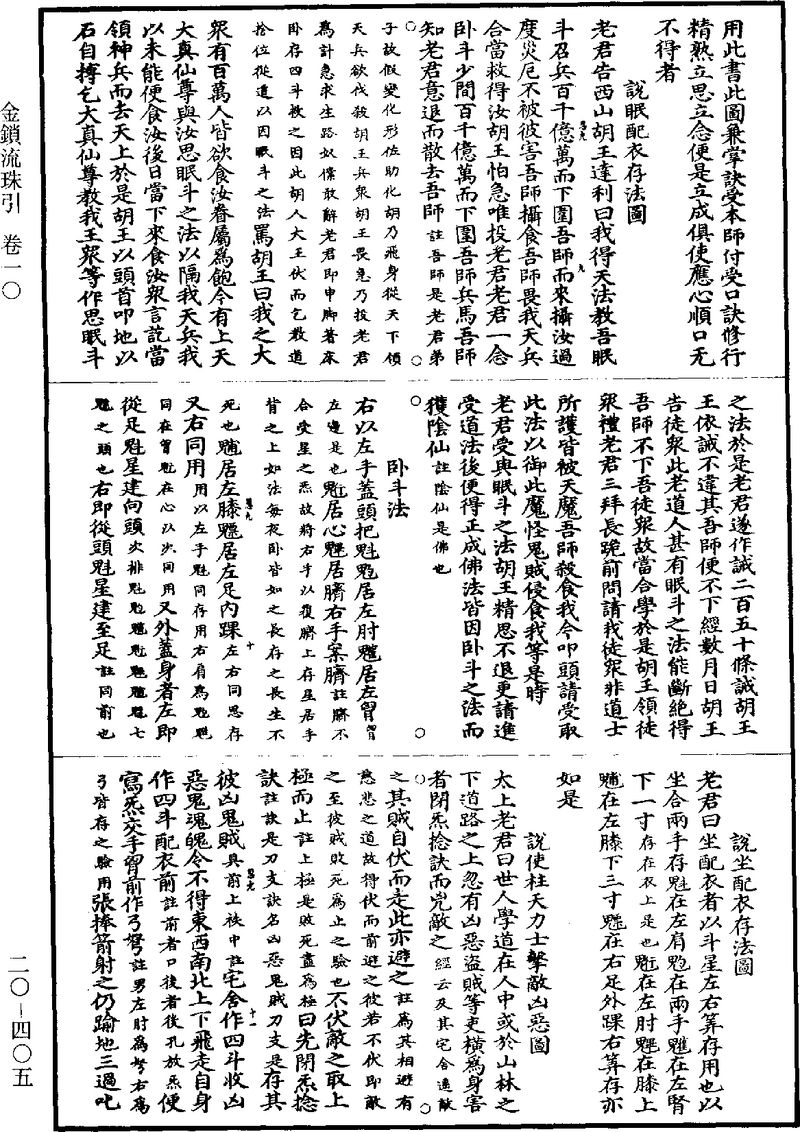 用此書此圖兼掌訣受本師付受口訣修行
精熟立思立念便是立成俱使應心順口无
不得者
說眠配衣存法圖
老君告西山胡王達利曰我得天法教吾眠
斗召兵百千億萬而下圍吾師而來攝汝過
度災厄不被被害吾師攝食吾師畏我天兵
合當救得汝胡王怕急唯投老君老君一念
卧斗少間百千億萬而下圍吾師兵馬吾師
知老君意退而散去吾師註吾師是老君弟
子故假變化形佐助化胡乃飛身從天下領
天兵欲伐殺胡王兵衆胡王畏急乃投老君
為計急求生路奴僕敢辭老君即申脚著床
卧存四斗救之因此胡人大王伏而乞教道
捨位從道以因眠斗之法罵胡王曰我之大
衆有百萬人皆欲食汝眷屬為飽今有上天
大真仙尊與汝思眠斗之法以隔我天兵我
以未能便食汝後日當下來食汝衆言訖當
領神兵而去天上於是胡王以頭首叩地以
石自搏乞大真仙尊教我王衆等作思眠斗
之法於是老君遂作誡二百五十條誡胡王
王依誡不違其吾師便不下經數月日胡王
告徒衆此老道人甚有眠斗之法能斷絕得
吾師不下吾徒衆故當合學於是胡王領徒
衆禮老君三拜長跪前問請我徒衆非道士
所護皆被天魔吾師殺食我今叩頭請受取
此法以御此魔怪鬼賊侵食我等是時
老君受與眠斗之法胡王精思不退更請進
受道法後便得正成佛法皆因卧斗之法而
獲陰仙註陰仙是佛也
卧斗法
右以左手蓋頭把魁䰢居左肘䰣居左胷胷
左邊是也魁居心䰢居臍右手案臍註臍不
合受星之炁故將右手以復臍上存星居手
背之上如法每夜卧皆如之長存之長生不
死也䰣居左膝䰢居左足內踝左右同思存
又右同用用以左手魁同存用右肩為魁
同在胷魁在心以次同用又外蓋身者左即
從足魁星建向頭次排七
魁之頭也右即從頭魁星建至足註同前也
說坐配衣存法圖
老君曰坐配衣者以斗星左右筭存用也以
坐合兩手存魁在左肩䰢在兩手䰣在左腎
下一寸存在衣上是也魁在左肘䰢在膝上
䰣在左膝下三寸䰢在右足外踝右筭存亦
如是
說使柱天力士擊敵凶惡圖
太上老君曰世人學道在人中或於山林之
下道路之上忽有凶惡盜賊等吏橫為身害
者閉炁捻訣而咒敵之經云及其宅舍遠敵
之其賊自伏而走此亦避之註為其相避有
慈悲之道故得伏而前避之彼若不伏即敵
之至彼賊敗死為止之驗也不伏敵之取上
極而止註上極是敗死盡為極曰先閉炁捻
訣註訣是刀支訣名凶惡鬼賊刀支是存其
彼凶鬼賊具前上袂中註宅舍作四斗收凶
惡鬼魂魄令不得東西南北上下飛走自身
作四斗配衣前註前者口後者後孔放炁便
寫炁交手胷前作弓弩註男左肘為弩右為
弓皆存之驗用張捧箭射之仍踰地三過叱
金鎖流珠引 卷一〇
二〇-四〇五